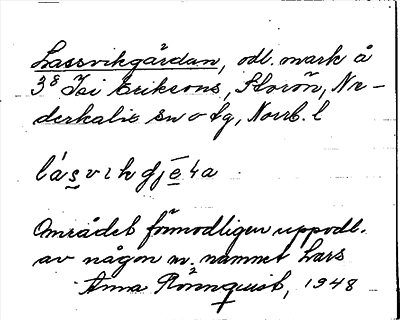 Lassvikgärdan, odl. mark å
3⁸ Isi Eriksons, Storön, Ne-
derkalix sn o tg, Norrb. l
Området förmodligen uppodl.
av någon m. namnet Lars
Anna Rönnquist, 1948